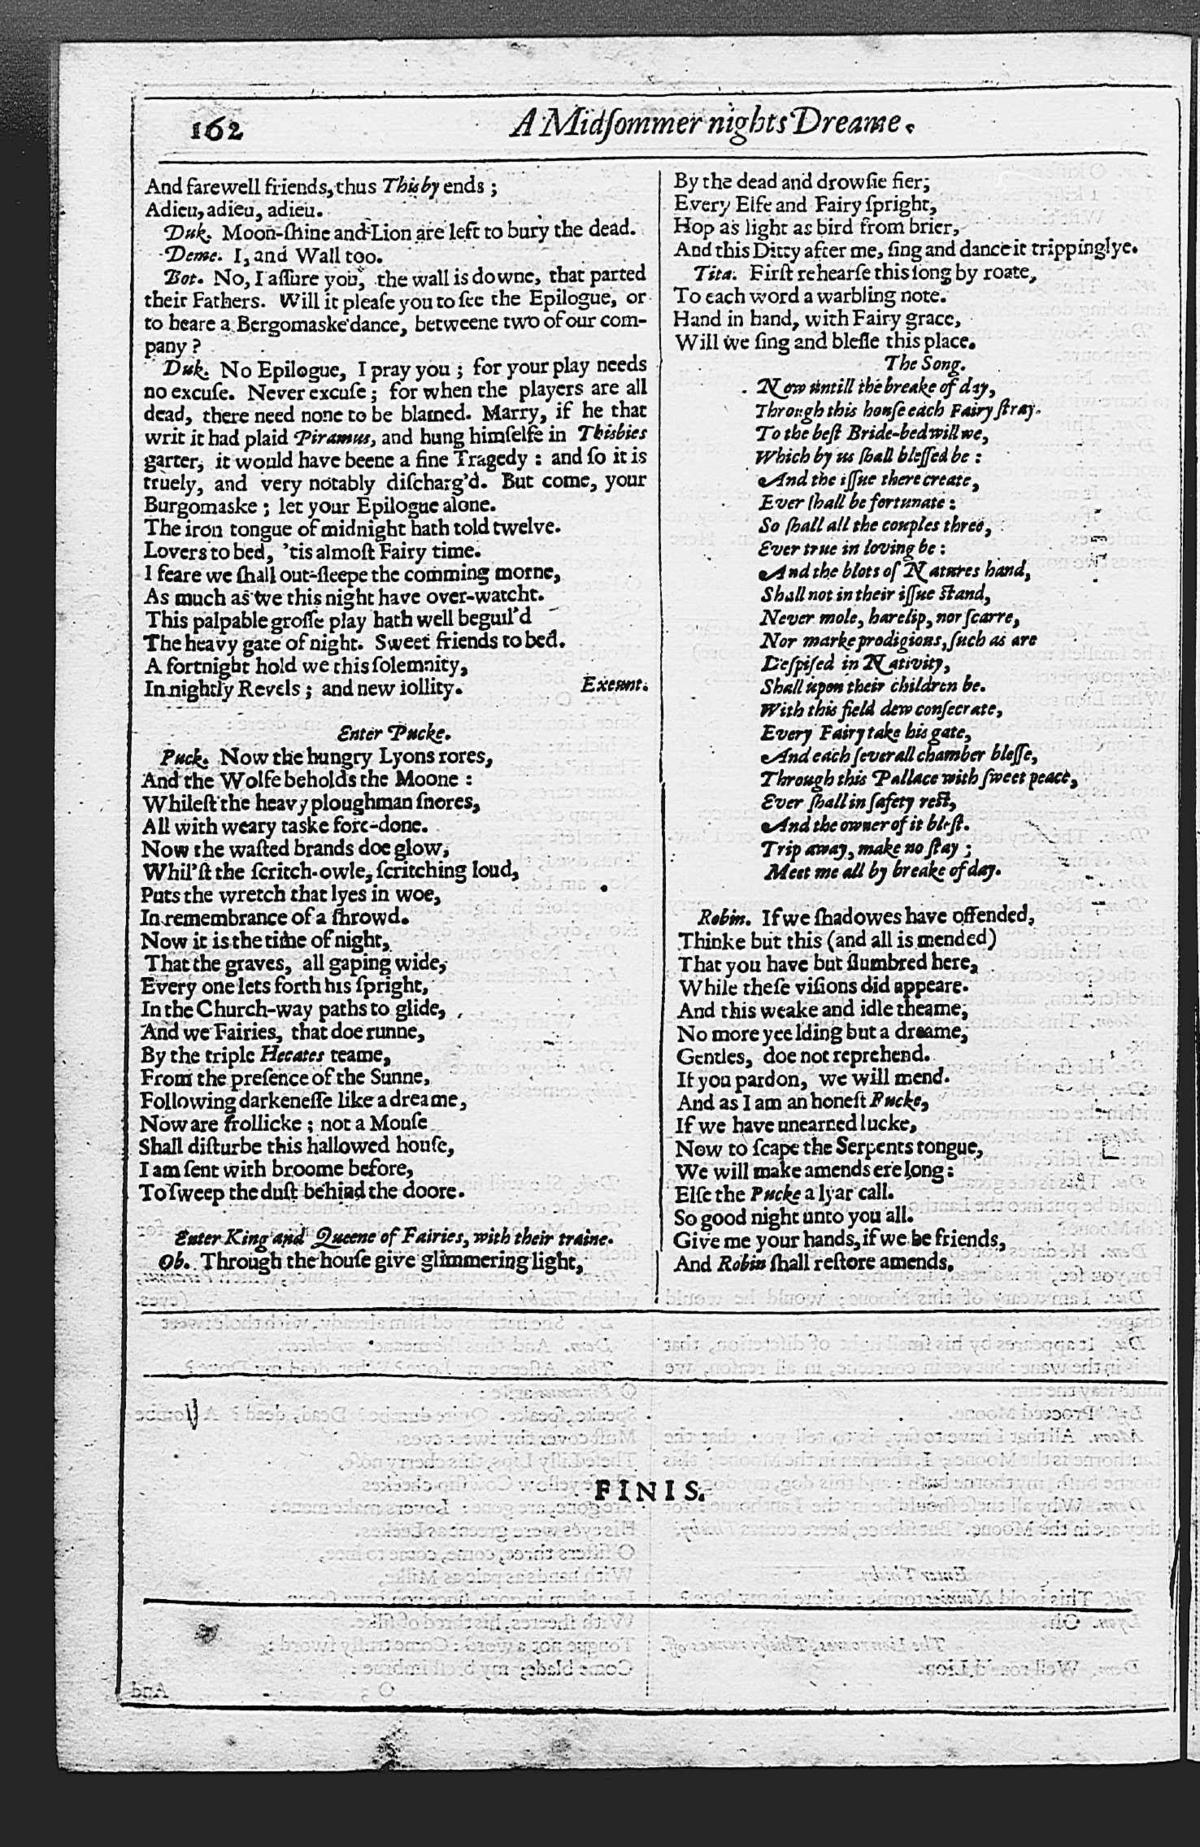 162
A Midſommer nights Dreame.
And farewell friends, thus Thisby ends ;
Adieu, adieu, adieu.
Duk. Moon-ſhine and Lion are left to bury the dead.
Deme. I, and Wall too.
Bot. No, I aſſure you, the wall is downe, that parted
their Fathers. Will it pleaſe you to ſee the Epilogue, or
to heare a Bergomaske dance, betweene two of our com-
pany ?
Duk. No Epilogue, I pray you ; for your play needs
no excuſe. Never excuſe ; for when the players are all
dead, there need none to be blamed. Marry, if he that
writ it had plaid Piramus, and hung himſelfe in Thisbies
garter, it would have beene a fine Tragedy : and ſo it is
truely, and very notably diſcharg'd. But come, your
Burgomaske ; let your Epilogue alone.
The iron tongue of midnight hath told twelve.
Lovers to bed, 'tis almoſt Fairy time.
I feare we ſhall out-ſleepe the comming morne,
As much as we this night have over-watcht.
This palpable groſſe play hath well beguil'd
The heavy gate of night. Sweet friends to bed.
A fortnight hold we this ſolemnity,
In nightly Revels ; and new iollity. Exeunt.
Enter Pucke.
Puck. Now the hungry Lyons rores,
And the Wolfe beholds the Moone :
Whileſt the heavy ploughman ſnores,
All with weary taske fore-done.
Now the waſted brands doe glow,
Whil'ſt the ſcritch-owle, ſcritching loud,
Puts the wretch that lyes in woe,
In remembrance of a ſhrowd.
Now it is the time of night,
That the graves, all gaping wide,
Every one lets forth his ſpright,
In the Church-way paths to glide,
And we Fairies, that doe runne,
By the triple Hecates teame,
From the preſence of the Sunne,
Following darkeneſſe like a dreame,
Now are frollicke ; not a Mouſe
Shall diſturbe this hallowed houſe,
I am ſent with broome before,
To ſweep the duſt behind the doore.
Enter King and Queene of Fairies, with their traine.
Ob. Through the houſe give glimmering light,
By the dead and drowſie fier;
Every Elfe and Fairy ſpright,
Hop as light as bird from brier,
And this Ditty after me, ſing and dance it trippinglye.
Tita. Firſt rehearſe this ſong by roate,
To each word a warbling note.
Hand in hand, with Fairy grace,
Will we ſing and bleſſe this place.
The Song.
Now untill the breake of day,
Through this houſe each Fairy ſtray.
To the beſt Bride-bed will we,
Which by us ſhall bleſſed be :
And the iſſue there create,
Ever ſhall be fortunate :
So ſhall all the couples three,
Ever true in loving be :
And the blots of Natures hand,
Shall not in their iſſue ſtand,
Never mole, harelip, nor ſcarre,
Nor marke prodigious, ſuch as are
Deſpiſed in Nativity,
Shall upon their children be.
With this field dew conſecrate,
Every Fairy take his gate,
And each ſeverall chamber bleſſe,
Through this Pallace with ſweet peace,
Ever ſhall in ſafety reſt,
And the owner of it bleſt.
Trip away, make no ſtay ;
Meet me all by breake of day.
Robin. If we ſhadowes have offended,
Thinke but this (and all is mended)
That you have but ſlumbred here,
While theſe viſions did appeare.
And this weake and idle theame,
No more yeelding but a dreame,
Gentles, doe not reprehend.
If you pardon, we will mend.
And as I am an honeſt Pucke,
If we have unearned lucke,
Now to ſcape the Serpents tongue,
We will make amends ere long :
Elſe the Pucke a lyar call.
So good night unto you all.
Give me your hands, if we be friends,
And Robin ſhall reſtore amends.
FINIS.